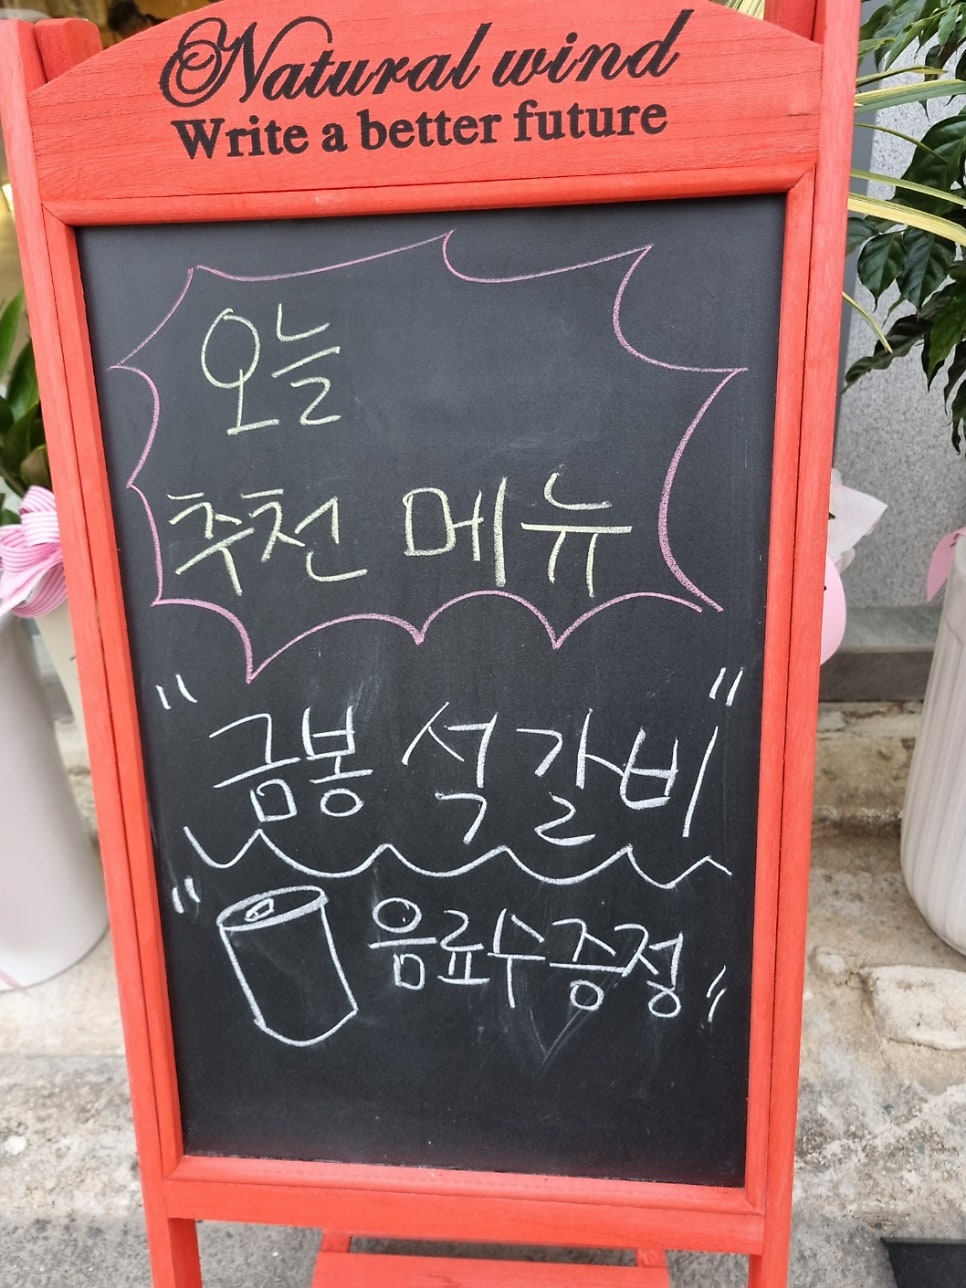 Natural wind
Write a better future
오늘
추천 메뉴
"금봉 석갈비"
"음료수증정"